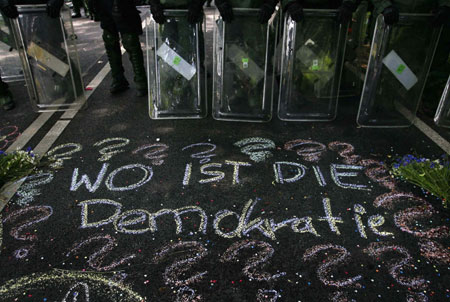 WO ist die
Demokratie